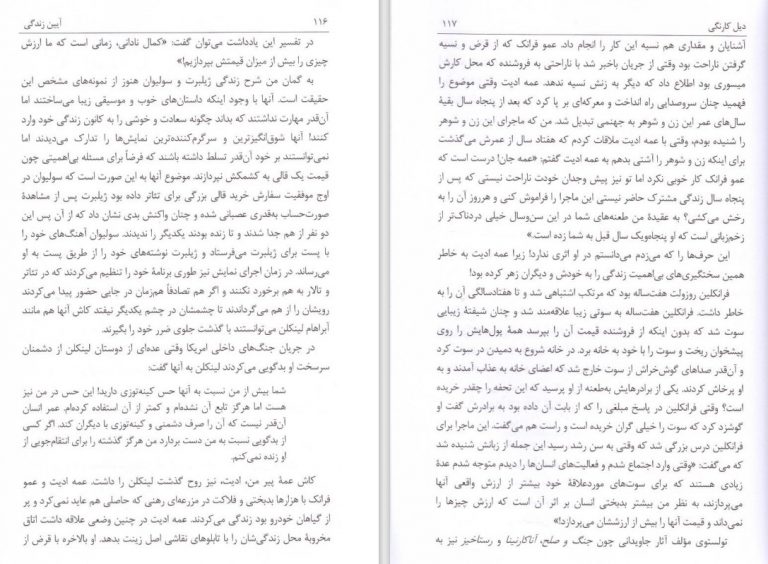 ۱۱۶ آیین زندگی
در تفسیر این یادداشت می‌توان گفت: «کمال نادانی، زمانی است که ما ارزش
چیزی را بیش از میزان قیمتش بپردازیم!»
به گمان من شرح زندگی ژیلبرت و سولیوان هنوز از نمونه‌های مشخص این
حقیقت است. آنها با وجود اینکه داستان‌های خوب و موسیقی زیبا می‌ساختند اما
آن‌قدر مهارت نداشتند که بداند چگونه سعادت و خوشی را به کانون زندگی خود وارد
کنند! آنها شوق‌انگیزترین و سرگرم‌کننده‌ترین نمایش‌ها را تدارک می‌دیدند اما
نمی‌توانستند بر خود آن‌قدر تسلط داشته باشند که فرضاً برای مسئله بی‌اهمیتی چون
قیمت یک قالی به کشمکش نپردازند. موضوع آنها به این صورت است که سولیوان در
اوج موفقیت سفارش خرید قالی بزرگی برای تئاتر داده بود ژیلبرت پس از مشاهدهٔ
صورت‌حساب به‌قدری عصبانی شده و چنان واکنش بدی نشان داد که از آن پس این
دو نفر از هم جدا شدند و تا زنده بودند یکدیگر را ندیدند. سولیوان آهنگ‌های خود را
با پست برای ژیلبرت می‌فرستاد و ژیلبرت نوشته‌های خود را از طریق پست به او
می‌رساند. در زمان اجرای نمایش نیز طوری برنامهٔ خود را تنظیم می‌کردند که در تئاتر
و تالار به هم برخورد نکنند و اگر هم تصادفاً هم‌زمان در جایی حضور پیدا می‌کردند
رویشان را از هم می‌گرداندند تا چشمشان در چشم یکدیگر نیفتد کاش آنها هم مانند
آبراهام لینکلن می‌توانستند با گذشت جلوی ضرر خود را بگیرند.
در جریان جنگ‌های داخلی امریکا وقتی عده‌ای از دوستان لینکلن از دشمنان
سرسخت او بدگویی می‌کردند لینکلن به آنها گفت:
شما بیش از من نسبت به آنها حس کینه‌توزی دارید! این حس در من نیز
هست اما هرگز تابع آن نشده‌ام و کمتر از آن استفاده کرده‌ام. عمر انسان
آن‌قدر نیست که آن را صرف دشمنی و کینه‌توزی با دیگران کند. اگر کسی
از بدگویی نسبت به من دست بردارد من هرگز گذشته را برای انتقام‌جویی از
او زنده نمی‌کنم.
کاش عمهٔ پیر من، ادیت، نیز روح گذشت لینکلن را داشت. عمه ادیت و عمو
فرانک با هزارها بدبختی و فلاکت در مزرعه‌ای رهنی که حاصلی هم عاید نمی‌کرد و پر
از گیاهان خودرو بود زندگی می‌کردند. عمه ادیت در چنین وضعی علاقه داشت اتاق
مخروبهٔ محل زندگی‌شان را با تابلوهای نقاشی اصل زینت بدهد. او بالاخره با قرض از
دیل کارنگی ۱۱۷
آشنایان و مقداری هم نسیه این کار را انجام داد. عمو فرانک که از قرض و نسیه
گرفتن ناراحت بود وقتی از جریان باخبر شد با ناراحتی به فروشنده که محل کارش
میسوری بود اطلاع داد که دیگر به زنش نسیه ندهد. عمه ادیت وقتی موضوع را
فهمید چنان سروصدایی راه انداخت و معرکه‌ای بر پا کرد که بعد از پنجاه سال بقیهٔ
سال‌های عمر این زن و شوهر به جهنمی تبدیل شد. من که ماجرای این زن و شوهر
را شنیده بودم، وقتی با عمه ادیت ملاقات کردم که هفتاد سال از عمرش می‌گذشت
برای اینکه زن و شوهر را آشتی بدهم به عمه ادیت گفتم: «عمه جان! درست است که
عمو فرانک کار خوبی نکرد اما تو نیز پیش وجدان خودت ناراحت نیستی که پس از
پنجاه سال زندگی مشترک حاضر نیستی این ماجرا را فراموش کنی و هرروز آن را به
رخش می‌کشی؟ به عقیدهٔ من طعنه‌های شما در این سن‌وسال خیلی دردناک‌تر از
زخم‌زبانی است که او پنجاه‌ویک سال قبل به شما زده است.»
این حرف‌ها را که می‌زدم می‌دانستم در او اثری ندارد! زیرا عمه ادیت به خاطر
همین سختگیری‌های بی‌اهمیت زندگی را به خودش و دیگران زهر کرده بود!
فرانکلین روزولت هفت‌ساله بود که مرتکب اشتباهی شد و تا هفتادسالگی آن را به
خاطر داشت. فرانکلین هفت‌ساله به سوتی زیبا علاقه‌مند شد و چنان شیفتهٔ زیبایی
سوت شد که بدون اینکه از فروشنده قیمت آن را بپرسد همهٔ پول‌هایش را روی
پیشخوان ریخت و سوت را با خود به خانه برد. در خانه شروع به دمیدن در سوت کرد
و آن‌قدر صداهای گوش‌خراش از سوت خارج شد که اعضای خانه به عذاب آمدند و به
او پرخاش کردند. یکی از برادرهایش به‌طعنه از او پرسید که این تحفه را چقدر خریده
است؟ وقتی فرانکلین در پاسخ مبلغی را که از بابت آن داده بود به برادرش گفت او
گوشزد کرد که سوت را خیلی گران خریده است و راست هم می‌گفت. این ماجرا برای
فرانکلین درس بزرگی شد که وقتی به سن رشد رسید این جمله از زبانش شنیده شد
که می‌گفت: «وقتی وارد اجتماع شدم و فعالیت‌های انسان‌ها را دیدم متوجه شدم عدهٔ
زیادی هستند که برای سوت‌های موردعلاقهٔ خود بیشتر از ارزش واقعی آنها
می‌پردازند، به نظر من بیشتر بدبختی انسان بر اثر آن است که ارزش چیزها را
نمی‌داند و قیمت آنها را بیش از ارزششان می‌پردازد!»
تولستوی مؤلف آثار جاویدانی چون جنگ و صلح، آناکارنینا و رستاخیز نیز به